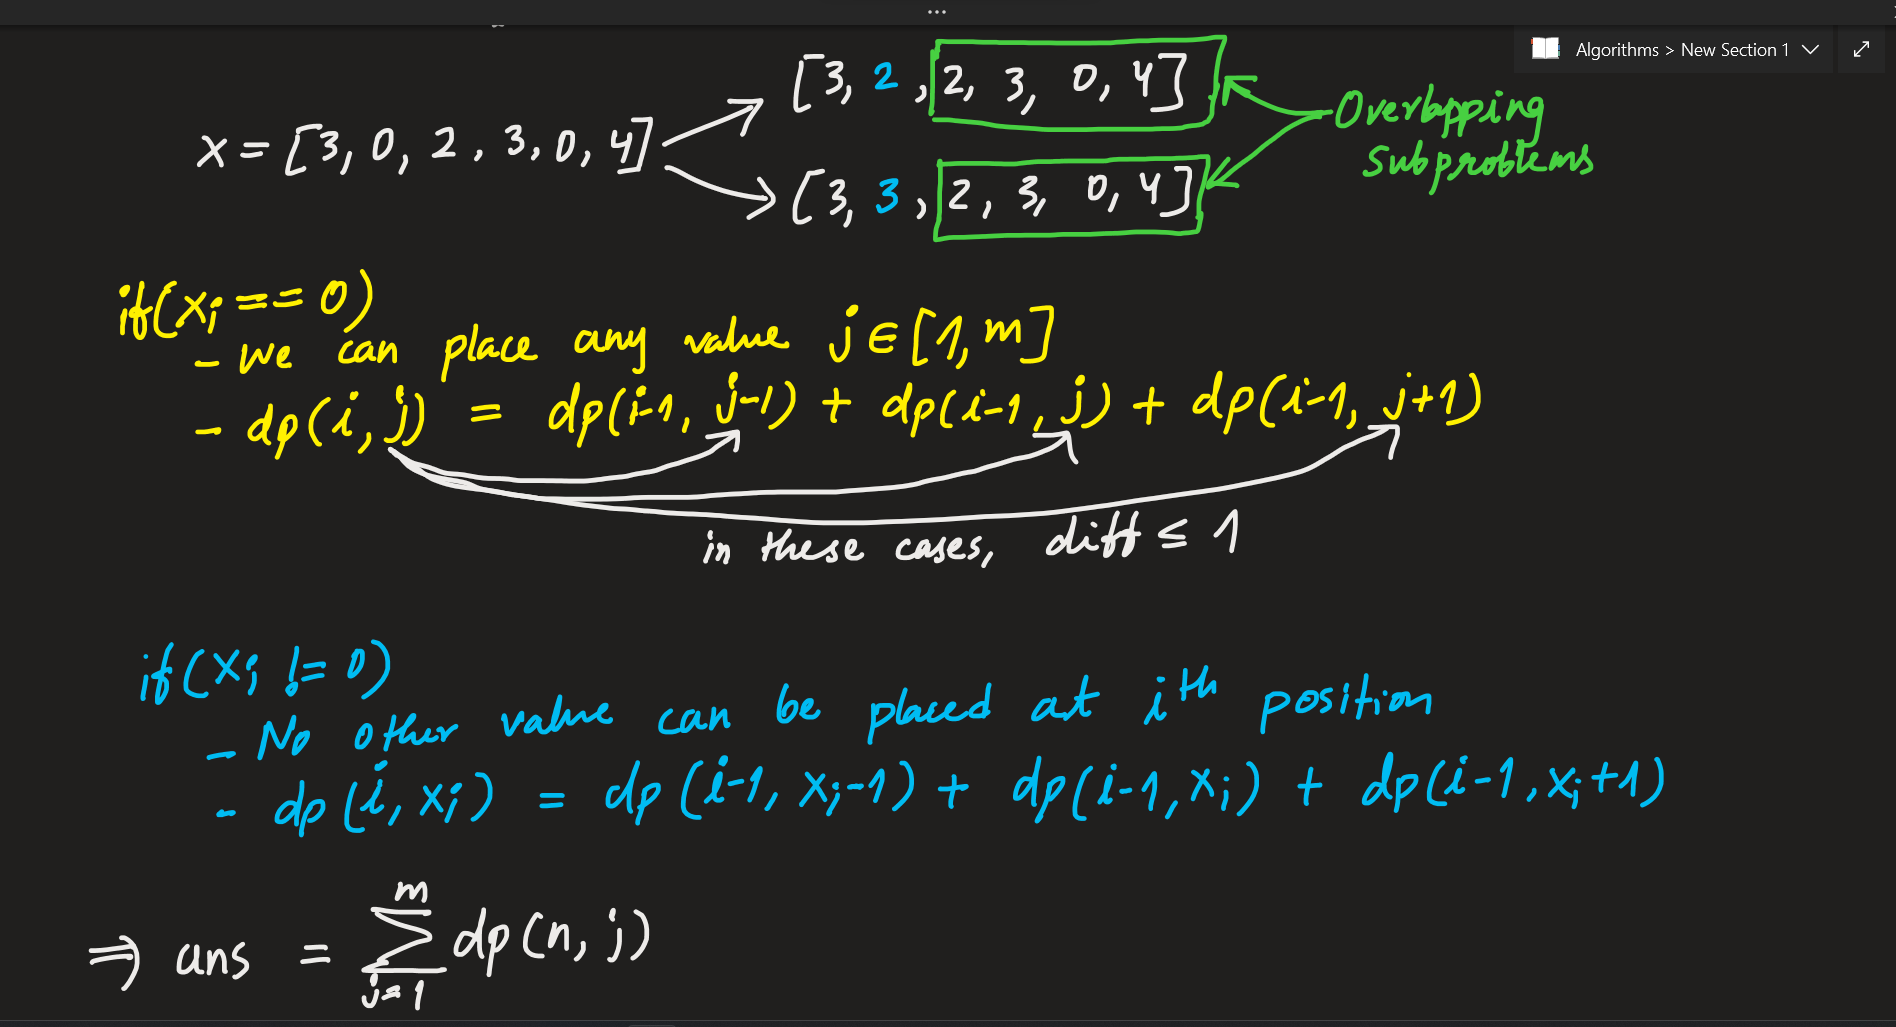 ...
Algorithms > New Section 1
[3, 2, 2, 3, 0, 4]
x = [3, 0, 2, 3, 0, 4]
[3, 3, 2, 3, 0, 4]
Overlapping
Subproblems
if(xi == 0)
- we can place any value j ∈ [1, m]
- dp(i, j) = dp(i-1, j-1) + dp(i-1, j) + dp(i-1, j+1)
in these cases, diff ≤ 1
if(xi != 0)
- No other value can be placed at ith position
- dp(i, xi) = dp(i-1, xi-1) + dp(i-1, xi) + dp(i-1, xi+1)
m
⇒ ans = ∑ dp(n, j)
j=1